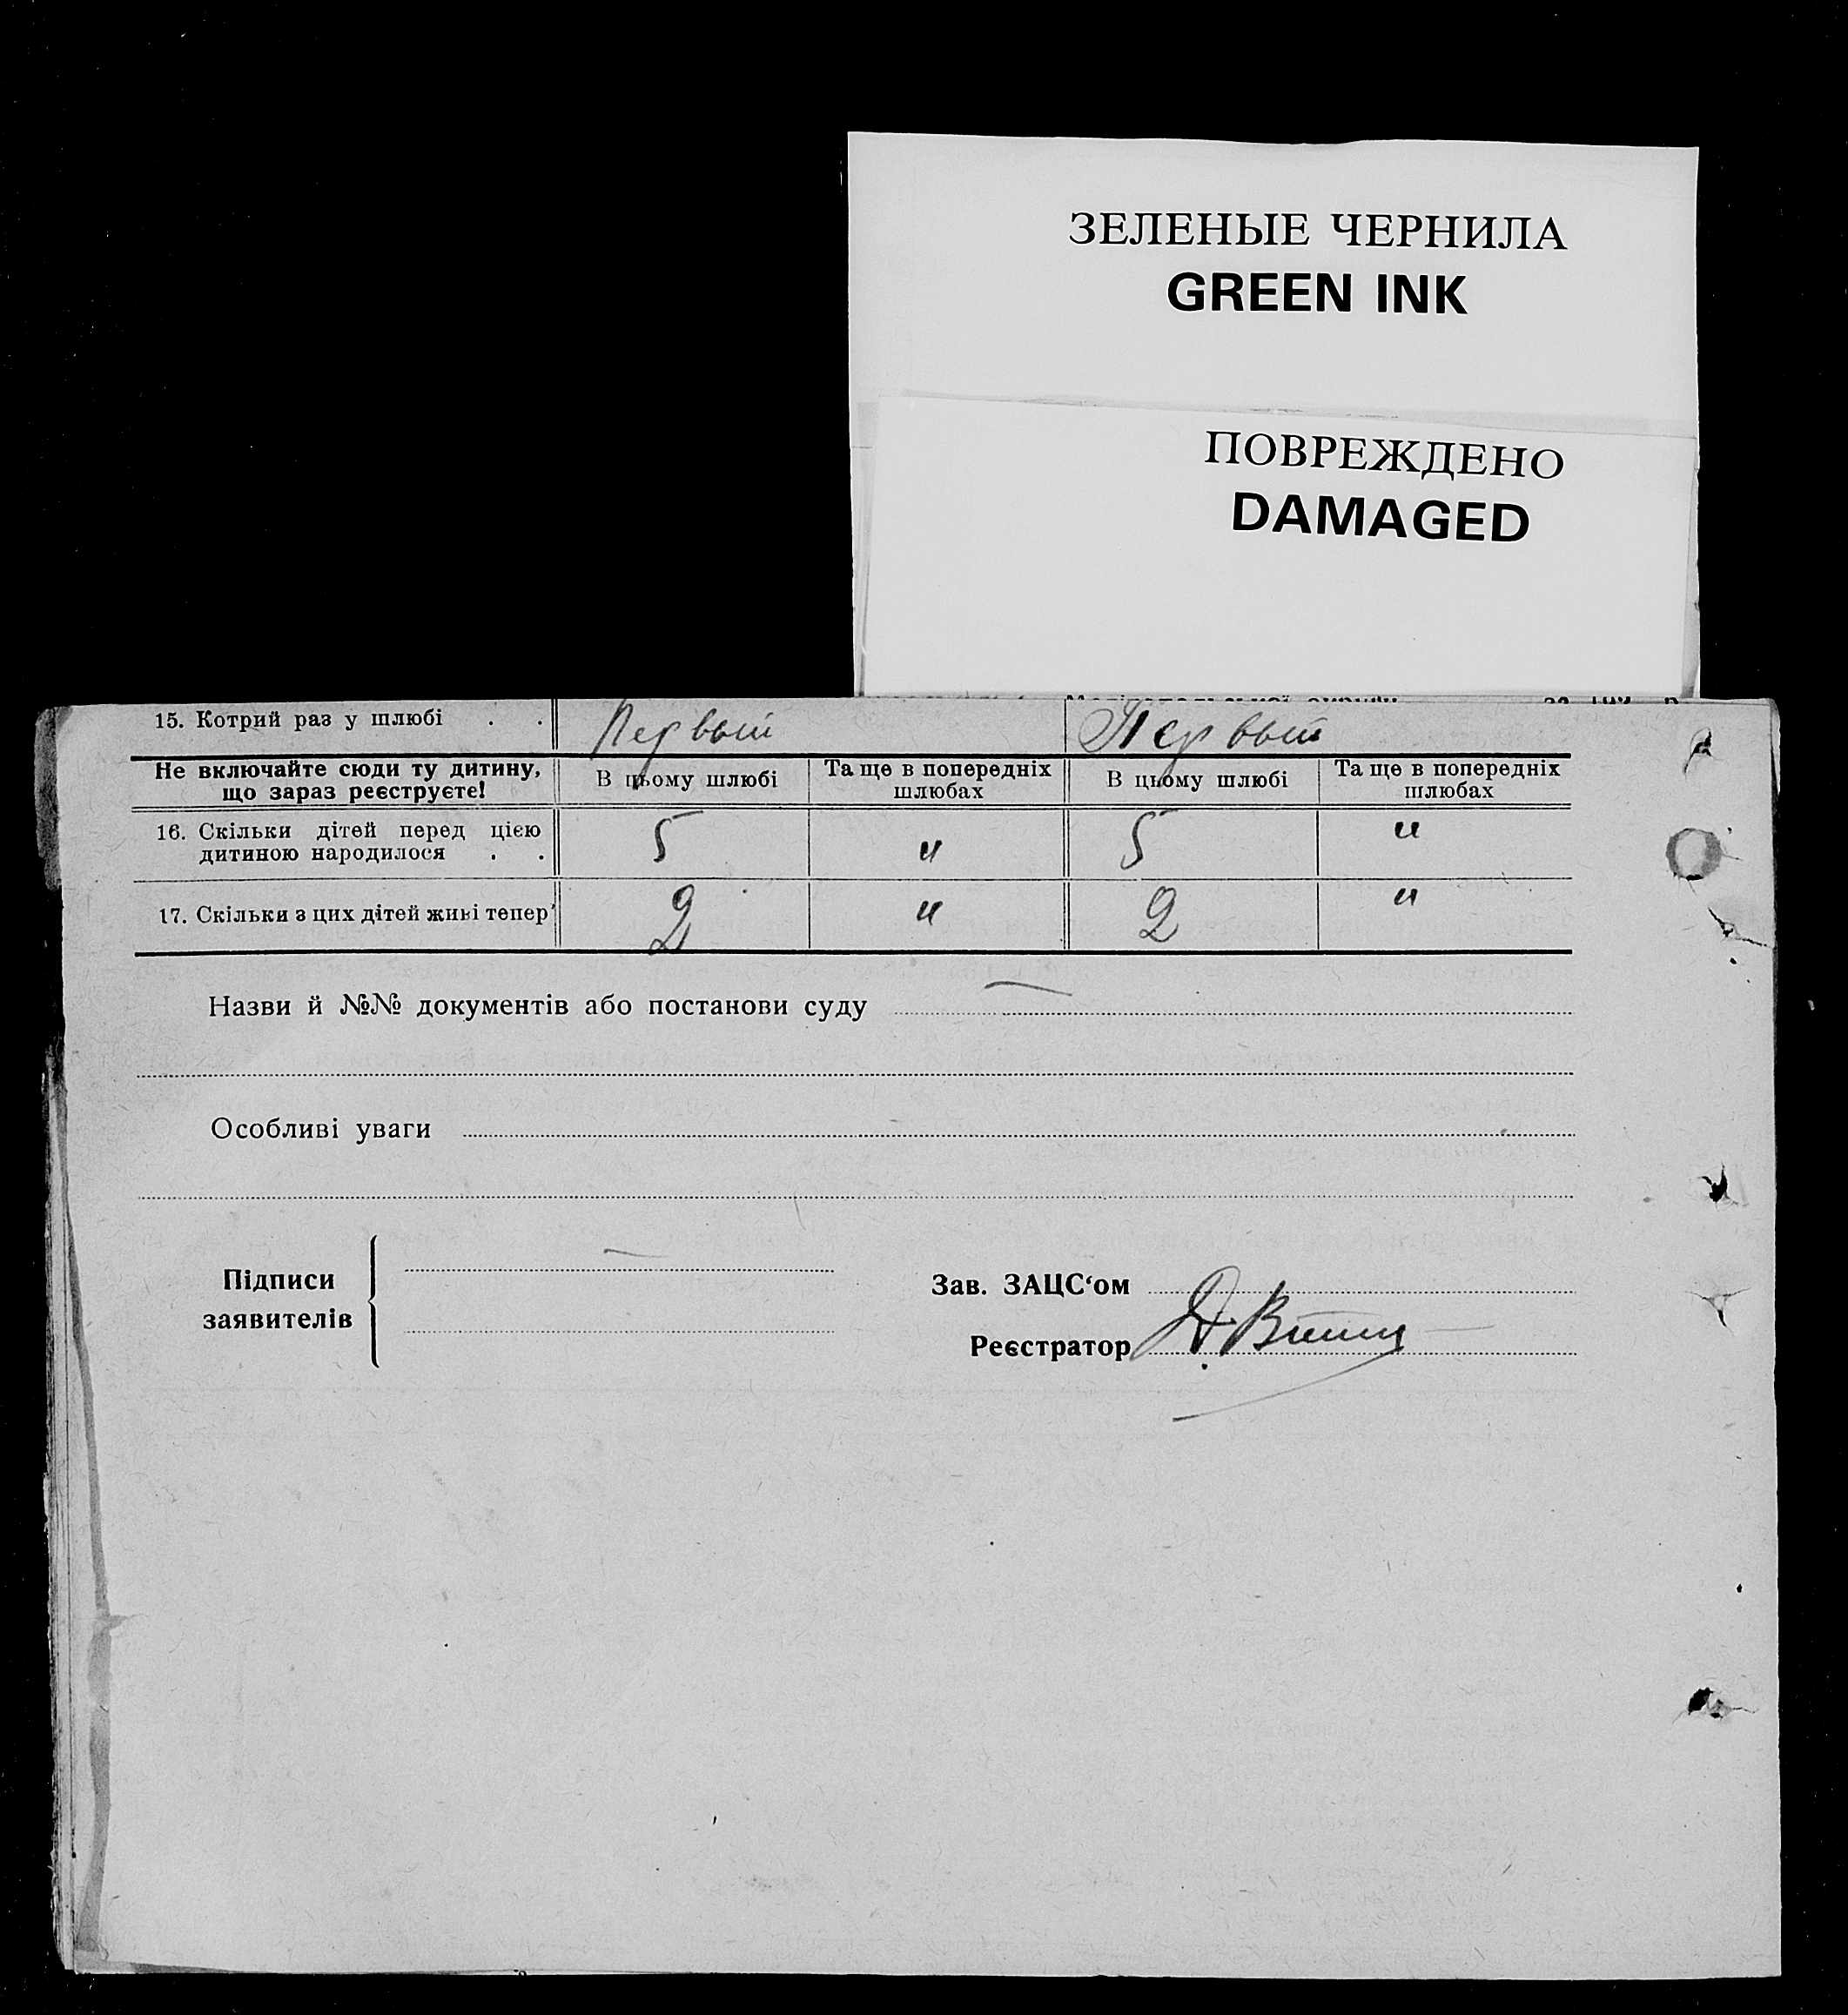 ЗЕЛЕНЫЕ ЧЕРНИЛА
GREEN INK
ПОВРЕЖДЕНО
DAMAGED
15. Котрий раз у шлюбі . . Первый Первый
Не включайте сюди ту дитину, що зараз реєструєте! В цьому шлюбі Та ще в попередніх шлюбах В цьому шлюбі Та ще в попередніх шлюбах
16. Скільки дітей перед цією
дитиною народилося . . 5 " 5 "
17. Скільки з цих дітей живі тепер 2 " 2 "
Назви й №№ документів або постанови суду —
Особливі уваги
Підписи
заявителів
Зав. ЗАЦС‘ом
Реєстратор